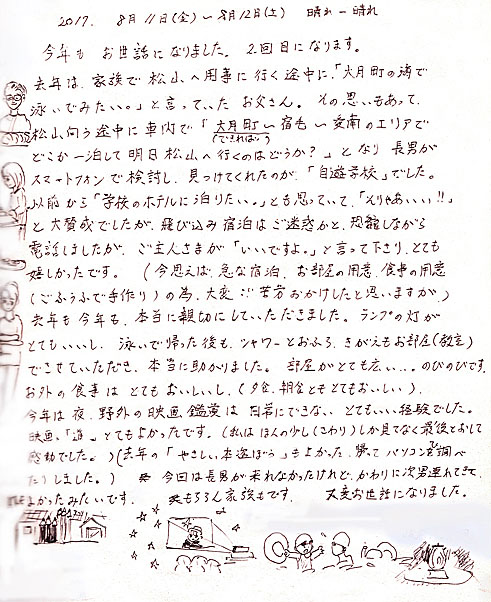 2017. 8月11日(金)〜8月12日(土) 晴れ-晴れ
今年も お世話になりました。2回目になります。
去年は、家族で松山へ用事に行く途中に、「大月町の海で
泳いでみたい。」と言っていた お父さん。その思いもあって、
松山向う途中に車内で「大月町〜宿毛〜愛南のエリアで
(できれば)
どこか一泊して明日松山へ行くのはどうか?」となり 長男が
スマートフォンで検討し、見つけてくれたのが、「自遊学校」でした。
以前から「学校のホテルに泊りたい。」とも思っていて、「えりゃあいい!!」
と大賛成でしたが、飛び込み宿泊はご迷惑かと、恐縮しながら
電話しましたが、ご主人さまが「いいですよ。」と言って下さり、とても
嬉しかったです。(今思えば、急な宿泊、お部屋の用意、食事の用意
(ごふうふで手作り)の為、大変ご苦労おかけしたと思いますが)
去年も今年も、本当に親切にしていただきました。ランプの灯が
とてもいいし、泳いで帰った後も、シャワーとおふろ、きがえもお部屋(教室)
でさせていただき、本当に助かりました。部屋がとても広い...のびのびです。
お外の食事はとてもおいしいし、(夕食、朝食ともとてもおいしい)、
今年は夜、野外の映画鑑賞は日常にできない とてもいい経験でした。
映画、「道」とてもよかったです。(私はほんの少し(さわり)しか見てなく最後とおして
感動でした。)(去年の「やさしい本泥ぼう」もよかった、帰ってパソコンで調べ
たりしました。) ※今回は長男が来れなかったけれど、かわりに次男連れてきて、
よかったみたいです。 ※もちろん家族もです。 大変お世話になりました。